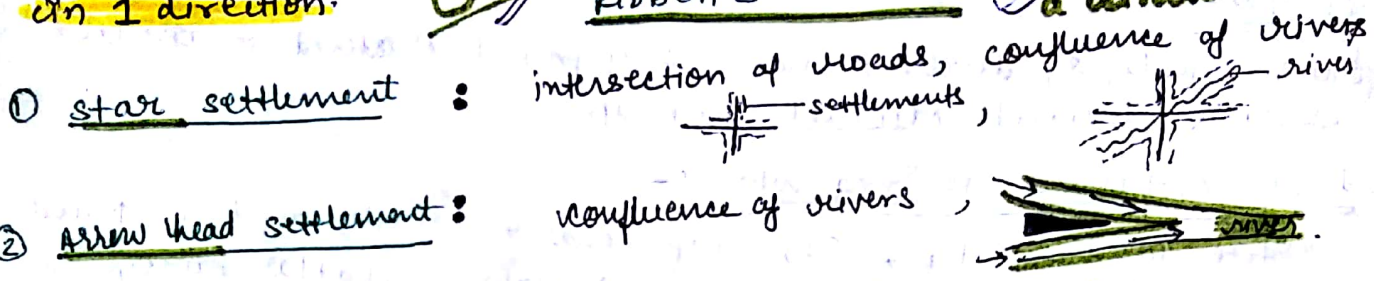 in 1 direction.
① star settlement : intersection of roads, confluence of rivers
settlements , river
② Arrow head settlement : confluence of rivers , river.